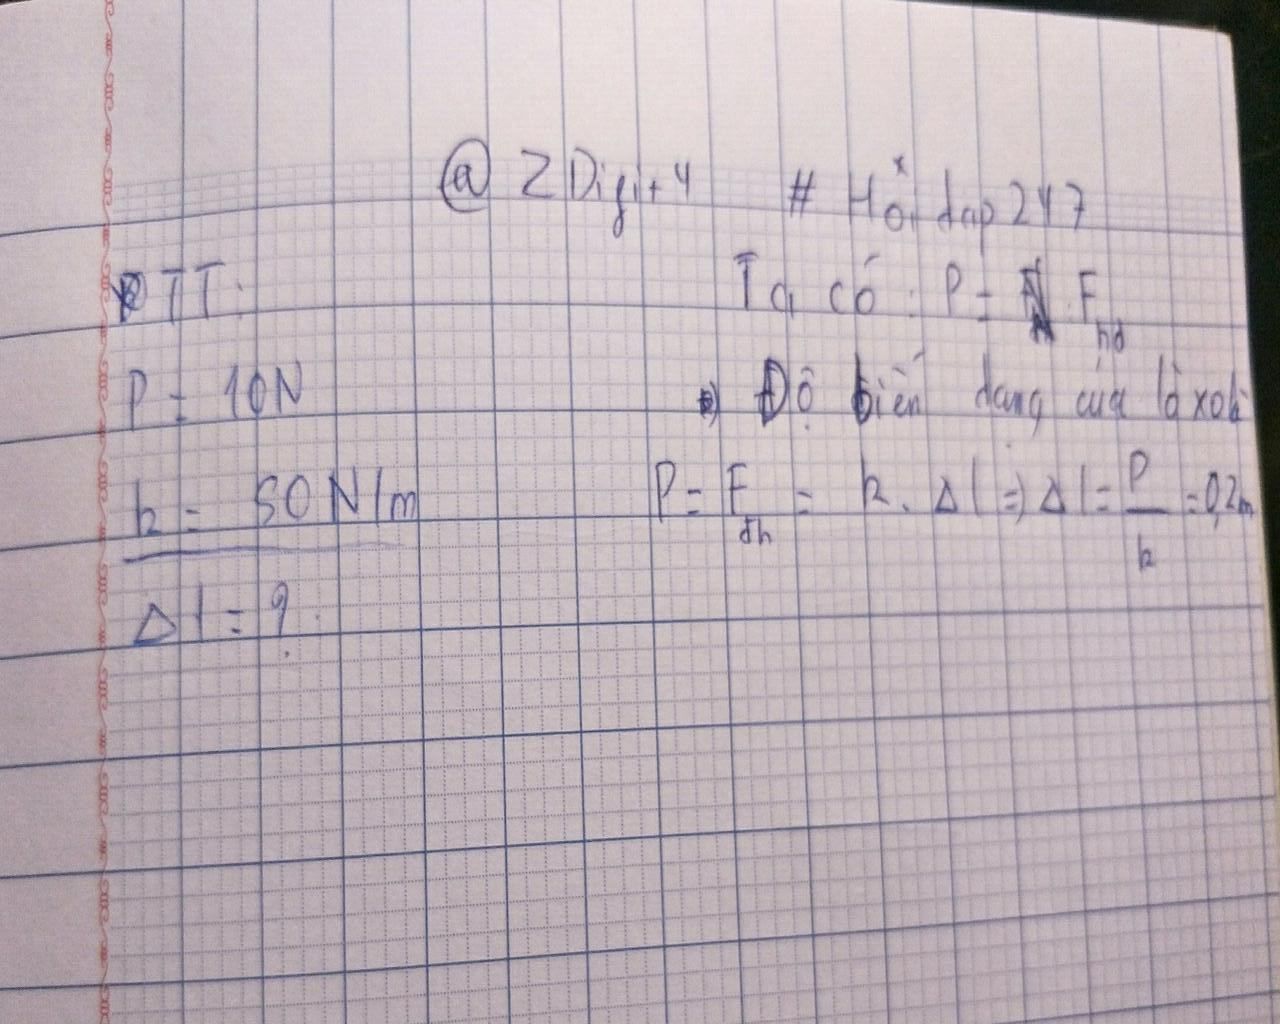 @ 2Digit4 # Hỏi đap 247
TT:
P = 10N
k = 50 N/m
Δl = ?
Ta có: P = F hd
=) Độ biến dạng của lò xo là
P = F đh = k. Δl =) Δl = P/k = 0,2m